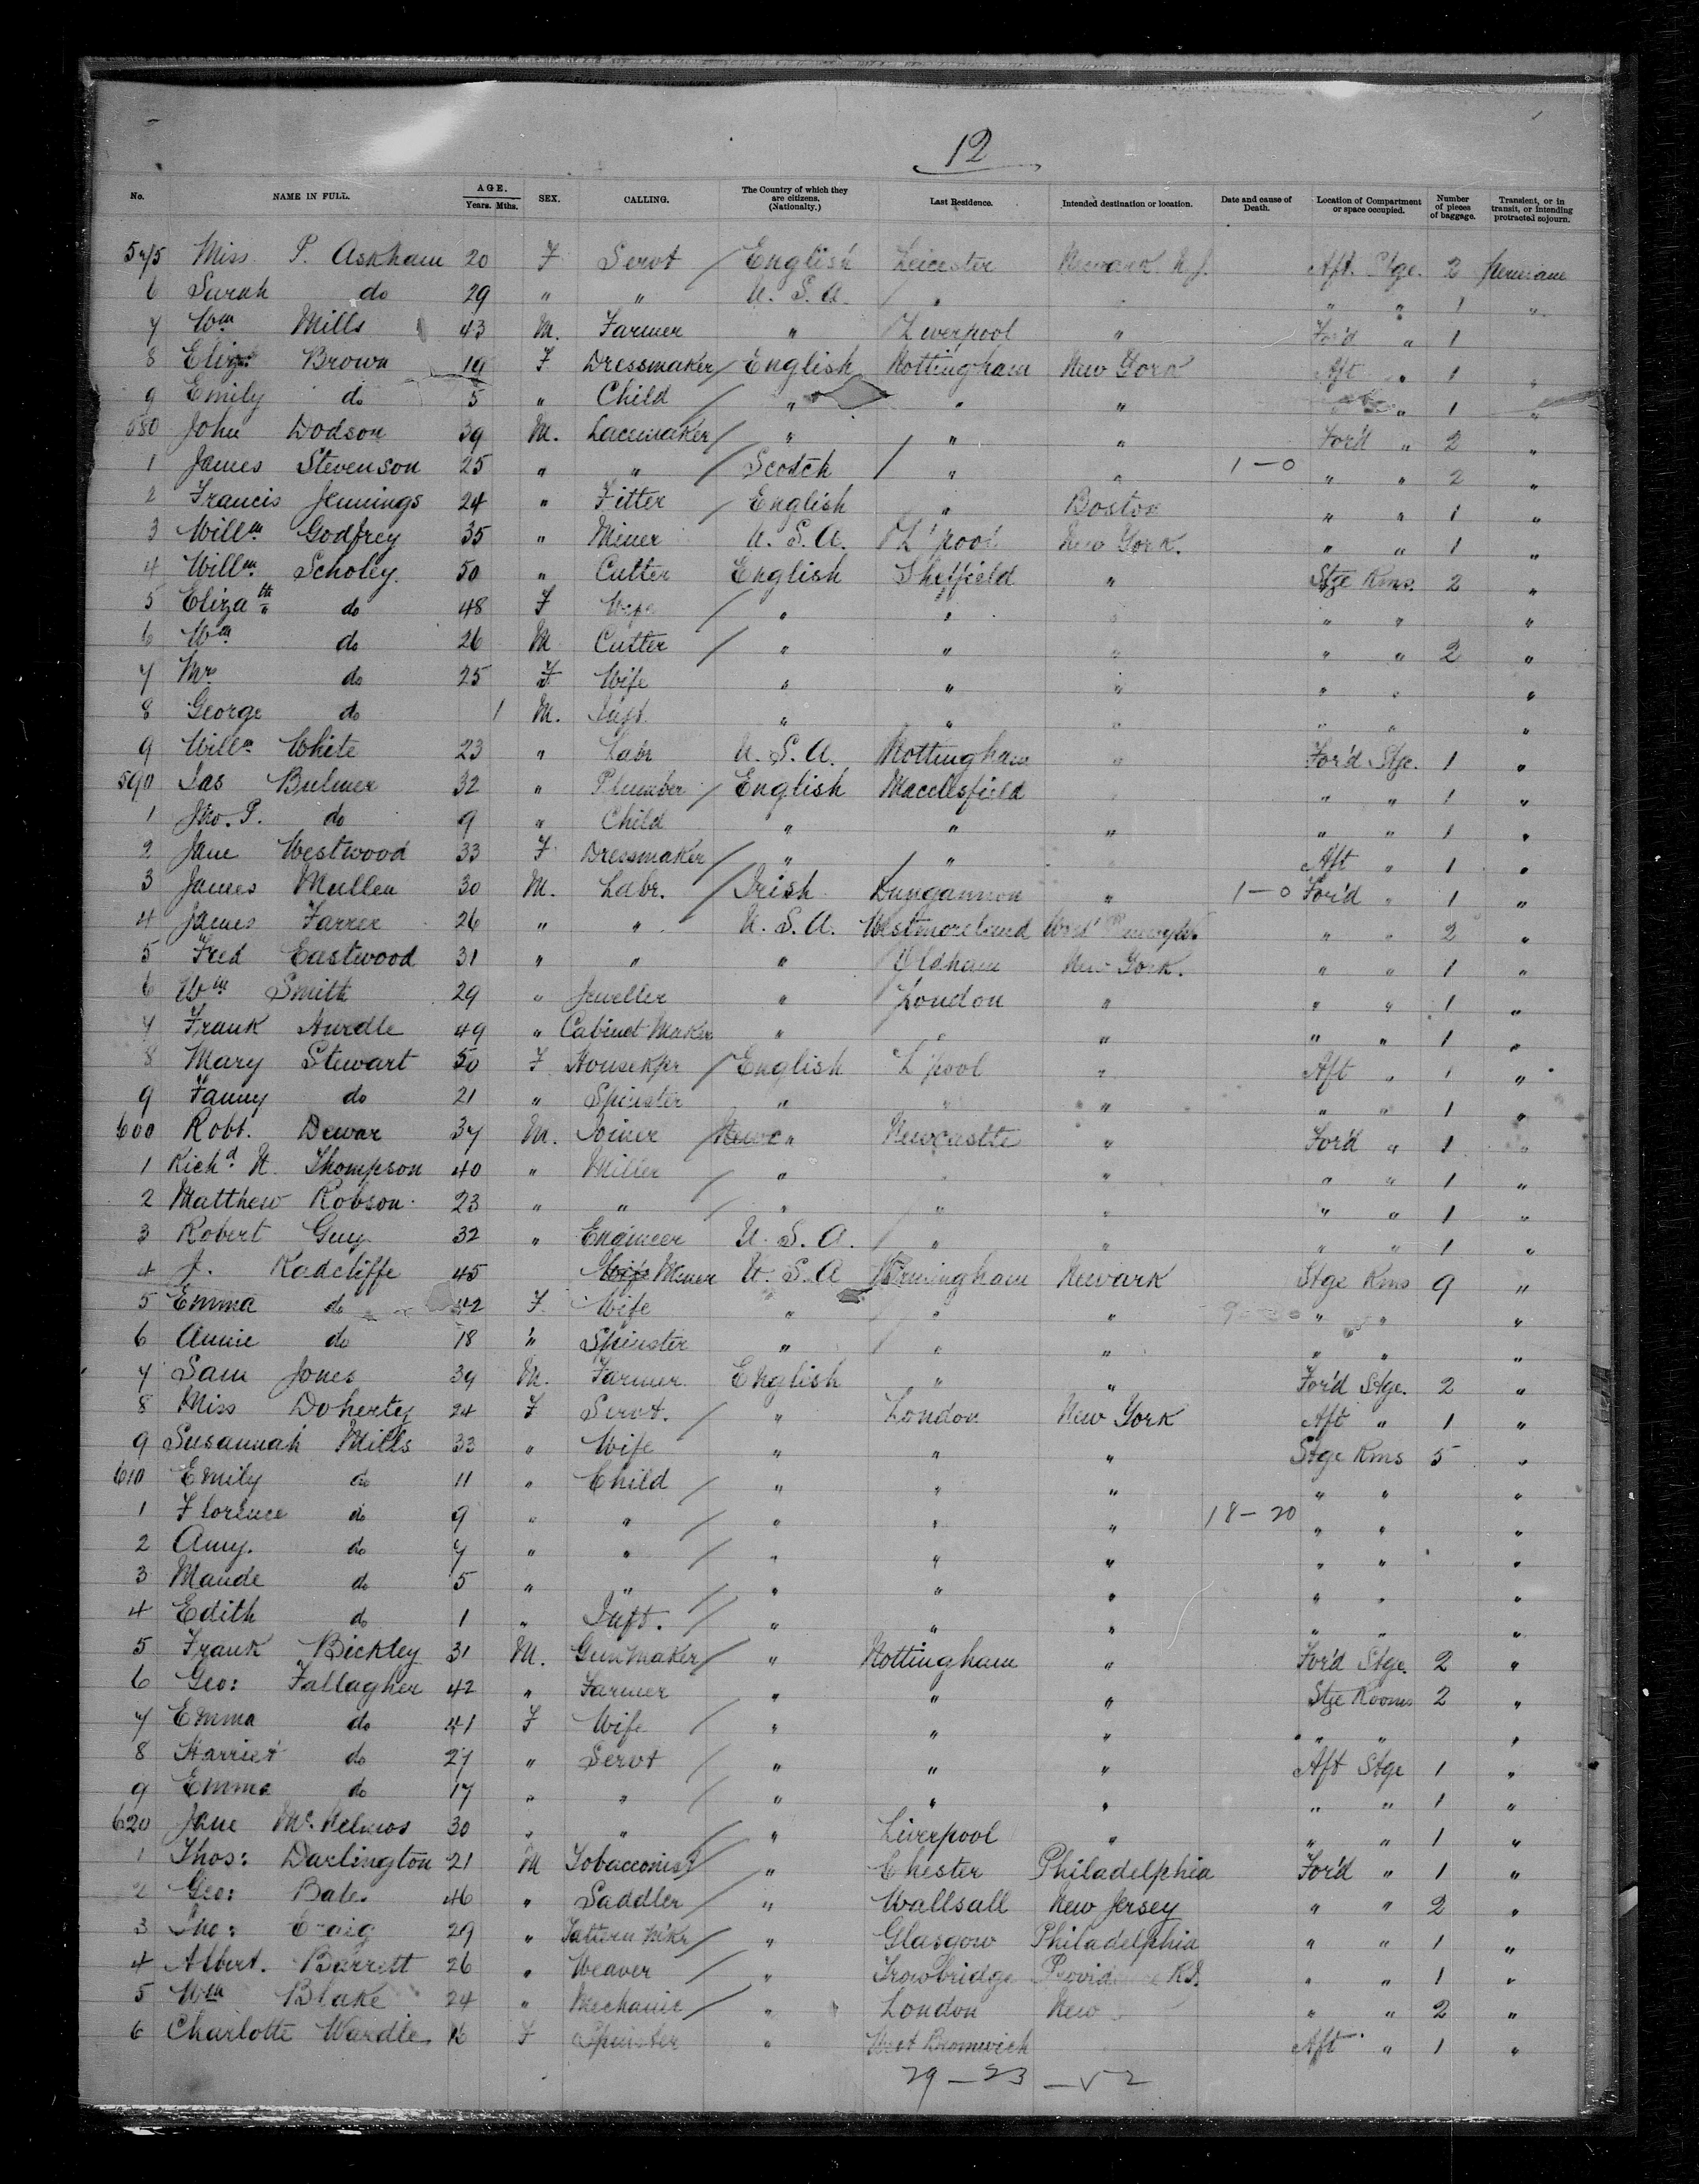 12
No. NAME IN FULL. AGE. Years. Mths. SEX. CALLING. The Country of which they are citizens. (Nationality.) Last Residence. Intended destination or location. Date and cause of Death. Location of Compartment or space occupied. Number of pieces of baggage. Transient, or in transit, or intending protracted sojourn.
575 Miss P. Askham 20 F Servt / English Leicester Newark N.J. Aft. Stge. 2
6 Sarah do 29 " " U.S.A. / " " " 1 "
7 Wm Mills 43 M. Farmer " / Liverpool " For'd " 1
8 Eliz. Brown 19 F Dressmaker / English Nottingham New York Aft " 1 "
9 Emily do 5 " Child / " " " " 1 "
580 John Dodson 39 M. Lacemaker / " / " " For'd " 2 "
1 James Stevenson 25 " " / Scotch / " " 1-0 " " 2 "
2 Francis Jennings 24 " Fitter / English " Boston " " 1 "
3 Willm Godfrey 35 " Miner U.S.A. / L'pool New York. " " 1 "
4 Willm Scholey. 50 " Cutter English Sheffield " Stge Rms. 2 "
5 Elizath do 48 F Wife / " " " " " "
6 Wm do 26 M Cutter / " " " " " 2 "
7 Mrs do 25 F Wife " " " " " "
8 George do 1 M. Inft. " " " " " "
9 Willm White 23 " Labr U.S.A. Nottingham " For'd Stge. 1 "
590 Jas Bulmer 32 " Plumber / English Macclesfield " " " 1 "
1 Jno. P. do 9 " Child " " " " " 1 "
2 Jane Westwood 33 F Dressmaker / " / " Aft " 1 "
3 James Mullen 30 M. Labr. / Irish Dungannon " 1-0 For'd " 1 "
4 James Farrer 26 " " U.S.A. Westmoreland " " 2 "
5 Fred Eastwood 31 " " " / Oldham New York. " " 1 "
6 Wm Smith 29 " Jeweller " / London " " " 1 "
7 Frank Hurdle 49 " Cabinet Maker " " " " " 1 "
8 Mary Stewart 50 F Housekper / English L'pool " Aft " 1 "
9 Fanny do 21 " Spinster " " " " " 1 "
600 Robt. Dewar 37 M. Joiner / " Newcastle " For'd " 1 "
1 Richd H. Thompson 40 " Miller / " " " " " 1 "
2 Matthew Robson 23 " " / " " " " " 1 "
3 Robert Guy 32 " Engineer U.S.A. / " " " " 1 "
4 J. Radcliffe 45 Miner U.S.A Birmingham Newark Stge Rms 9 "
5 Emma do 42 F. Wife " / " " " " "
6 Annie do 18 " Spinster " / " " " " "
7 Sam Jones 39 M. Farmer English " " For'd Stge. 2 "
8 Miss Doherty 24 F Servt. / " London New York Aft " 1 "
9 Susannah Mills 33 " Wife " " " Stge Rms 5 "
610 Emily do 11 " Child / " " " " " "
1 Florence do 9 " " / " " " 18-20 " " "
2 Amy. do 7 " " / " " " " " "
3 Maude do 5 " " / " " " " " "
4 Edith do 1 " Inft. / " " " " " "
5 Frank Bickley 31 M. Gunmaker / " Nottingham " For'd Stge. 2 "
6 Geo: Fallagher 42 " Farmer " " " Stge Rooms 2 "
7 Emma do 41 F Wife / " " " " " "
8 Harriet do 27 " Servt / " " " Aft Stge 1 "
9 Emma do 17 " " / " " " " " 1 "
620 Jane 30 " " / " Liverpool " " " 1 "
1 Thos: Darlington 21 M Tobacconist / " Chester Philadelphia For'd " 1 "
2 Geo: Bate. 46 " Saddler / " Wallsall New Jersey " " 2 "
3 Jno: Craig 29 " Pattern Mkr / " Glasgow Philadelphia " " 1 "
4 Albert. Barrett 26 " Weaver / " Trowbridge " " 1 "
5 Wm Blake 24 " Mechanic / " London New " " 2 "
6 Charlotte Wardle 16 F Spinster " West Bromwich Aft " 1 "
29-23